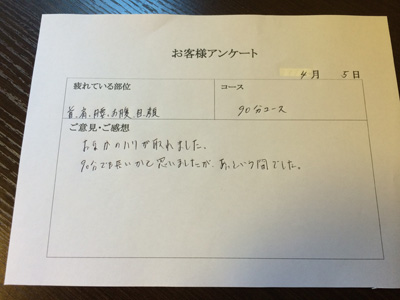 お客様アンケート
4月 5日
疲れている部位
コース
首、肩、腰、お腹、目、顔
90分コース
ご意見・ご感想
お腹のハリが取れました。
90分でも長いかと思いましたが、あっという間でした。